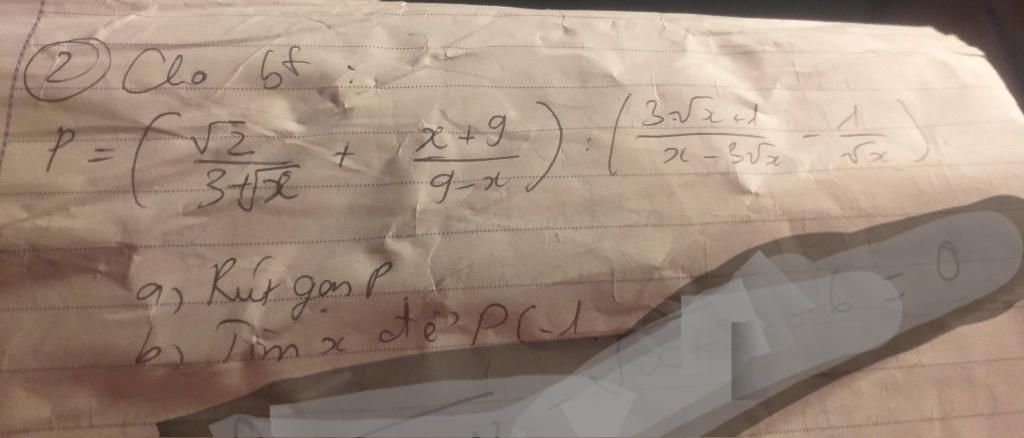 ② Cho bt :
P = ( √2 / (3+√x) + (x+9) / (9-x) ) : ( (3√x+1) / (x-3√x) - 1 / √x ).
a, Rút gọn P
b, Tìm x để P < -1
- 6 = 0